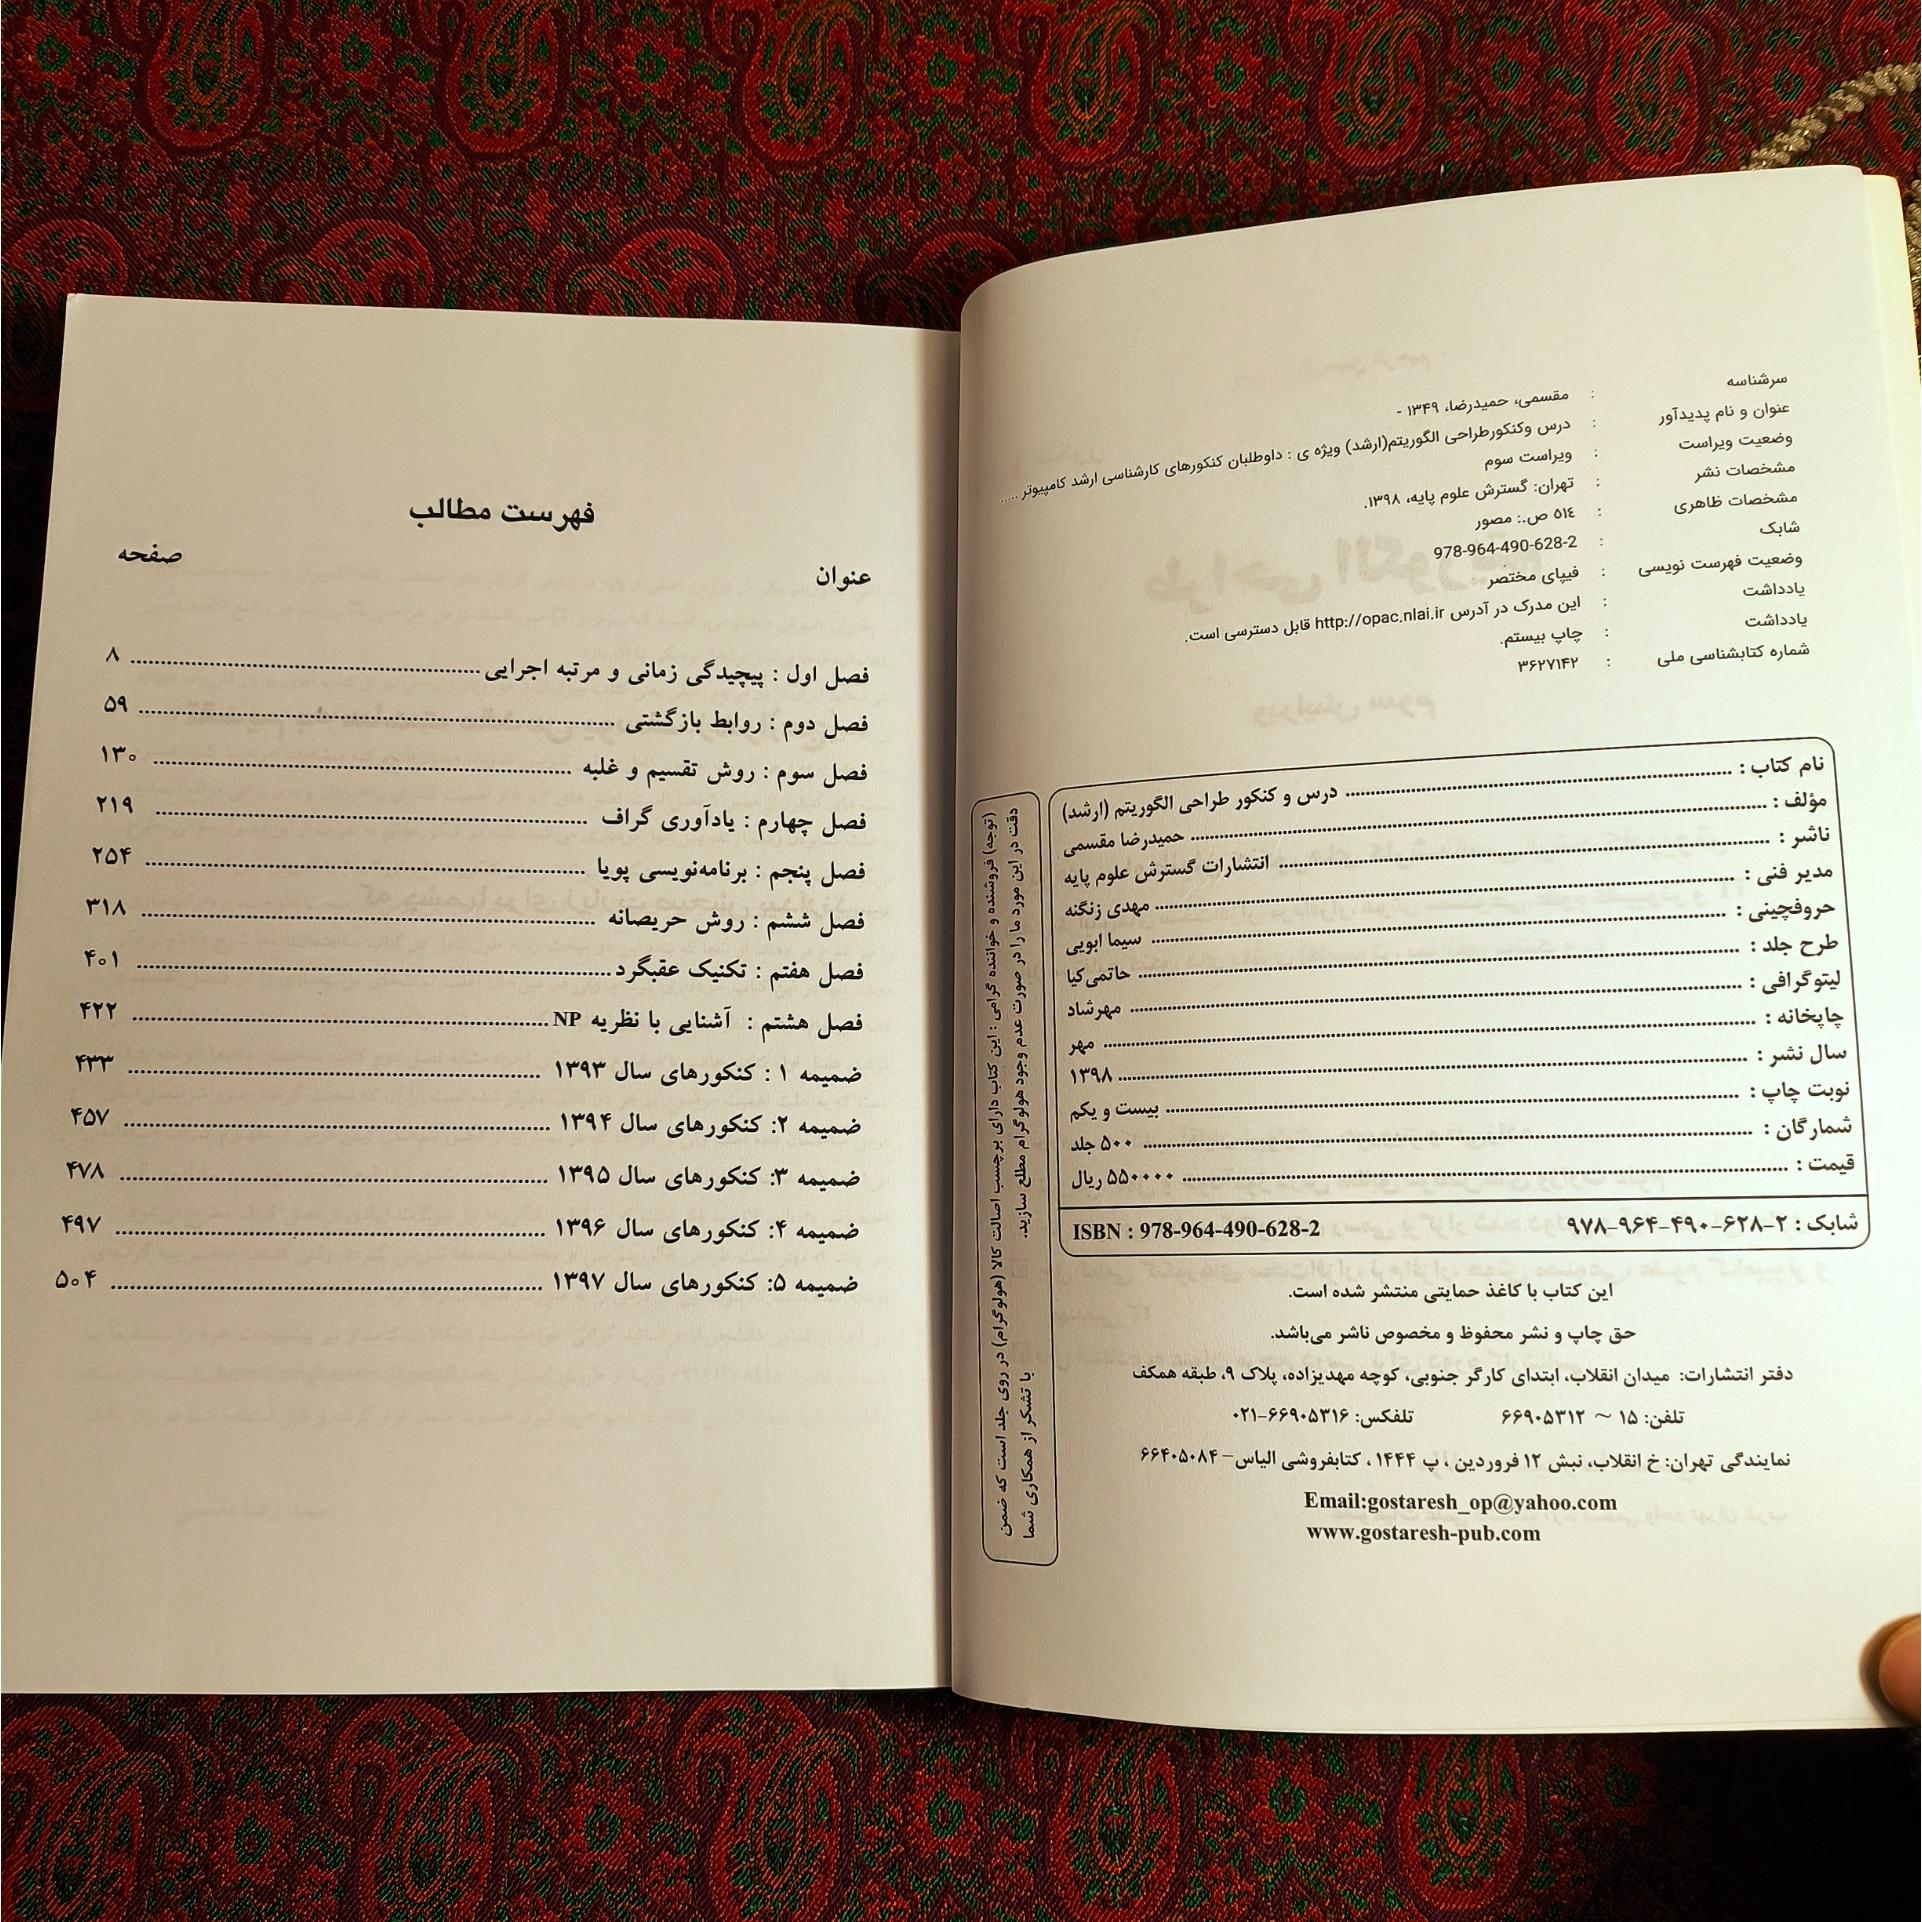 سرشناسه : مقسمی، حمیدرضا، ۱۳۴۹ -
عنوان و نام پدیدآور : درس وکنکورطراحی الگوریتم(ارشد) ویژه ی : داوطلبان کنکورهای کارشناسی ارشد کامپیوتر .....
وضعیت ویراست : ویراست سوم
مشخصات نشر : تهران: گسترش علوم پایه، ۱۳۹۸.
مشخصات ظاهری : ٥١٤ ص.: مصور
شابک : 978-964-490-628-2
وضعیت فهرست نویسی : فیپای مختصر
یادداشت : این مدرک در آدرس http://opac.nlai.ir قابل دسترسی است.
یادداشت : چاپ بیستم.
شماره کتابشناسی ملی : ۳۶۲۷۱۴۲
نام کتاب : ........ درس و کنکور طراحی الگوریتم (ارشد)
مؤلف : ........ حمیدرضا مقسمی
ناشر : ........ انتشارات گسترش علوم پایه
مدیر فنی : ........ مهدی زنگنه
حروفچینی : ........ سیما ابویی
طرح جلد : ........ حاتمی‌کیا
لیتوگرافی : ........ مهرشاد
چاپخانه : ........ مهر
سال نشر : ........ ۱۳۹۸
نوبت چاپ : ........ بیست و یکم
شمارگان : ........ ۵۰۰ جلد
قیمت : ........ ۵۵۰۰۰۰ ریال
شابک : ۲-۶۲۸-۴۹۰-۹۶۴-۹۷۸ ISBN : 978-964-490-628-2
(توجه) فروشنده و خواننده گرامی : این کتاب دارای برچسب اصالت کالا (هولوگرام) در روی جلد است که ضمن
دقت در این مورد ما را در صورت عدم وجود هولوگرام مطلع سازید. با تشکر از همکاری شما
این کتاب با کاغذ حمایتی منتشر شده است.
حق چاپ و نشر محفوظ و مخصوص ناشر می‌باشد.
دفتر انتشارات: میدان انقلاب، ابتدای کارگر جنوبی، کوچه مهدیزاده، پلاک ۹، طبقه همکف
تلفن: ۱۵ ~ ۶۶۹۰۵۳۱۲ تلفکس: ۶۶۹۰۵۳۱۶-۰۲۱
نمایندگی تهران: خ انقلاب، نبش ۱۲ فروردین ، پ ۱۴۴۴ ، کتابفروشی الیاس– ۶۶۴۰۵۰۸۴
Email:gostaresh_op@yahoo.com
www.gostaresh-pub.com
فهرست مطالب
عنوان صفحه
فصل اول : پیچیدگی زمانی و مرتبه اجرایی ........ ۸
فصل دوم : روابط بازگشتی ........ ۵۹
فصل سوم : روش تقسیم و غلبه ........ ۱۳۰
فصل چهارم : یادآوری گراف ........ ۲۱۹
فصل پنجم : برنامه‌نویسی پویا ........ ۲۵۴
فصل ششم : روش حریصانه ........ ۳۱۸
فصل هفتم : تکنیک عقبگرد ........ ۴۰۱
فصل هشتم : آشنایی با نظریه NP ........ ۴۲۲
ضمیمه ۱ : کنکورهای سال ۱۳۹۳ ........ ۴۳۳
ضمیمه ۲: کنکورهای سال ۱۳۹۴ ........ ۴۵۷
ضمیمه ۳: کنکورهای سال ۱۳۹۵ ........ ۴۷۸
ضمیمه ۴: کنکورهای سال ۱۳۹۶ ........ ۴۹۷
ضمیمه ۵: کنکورهای سال ۱۳۹۷ ........ ۵۰۴